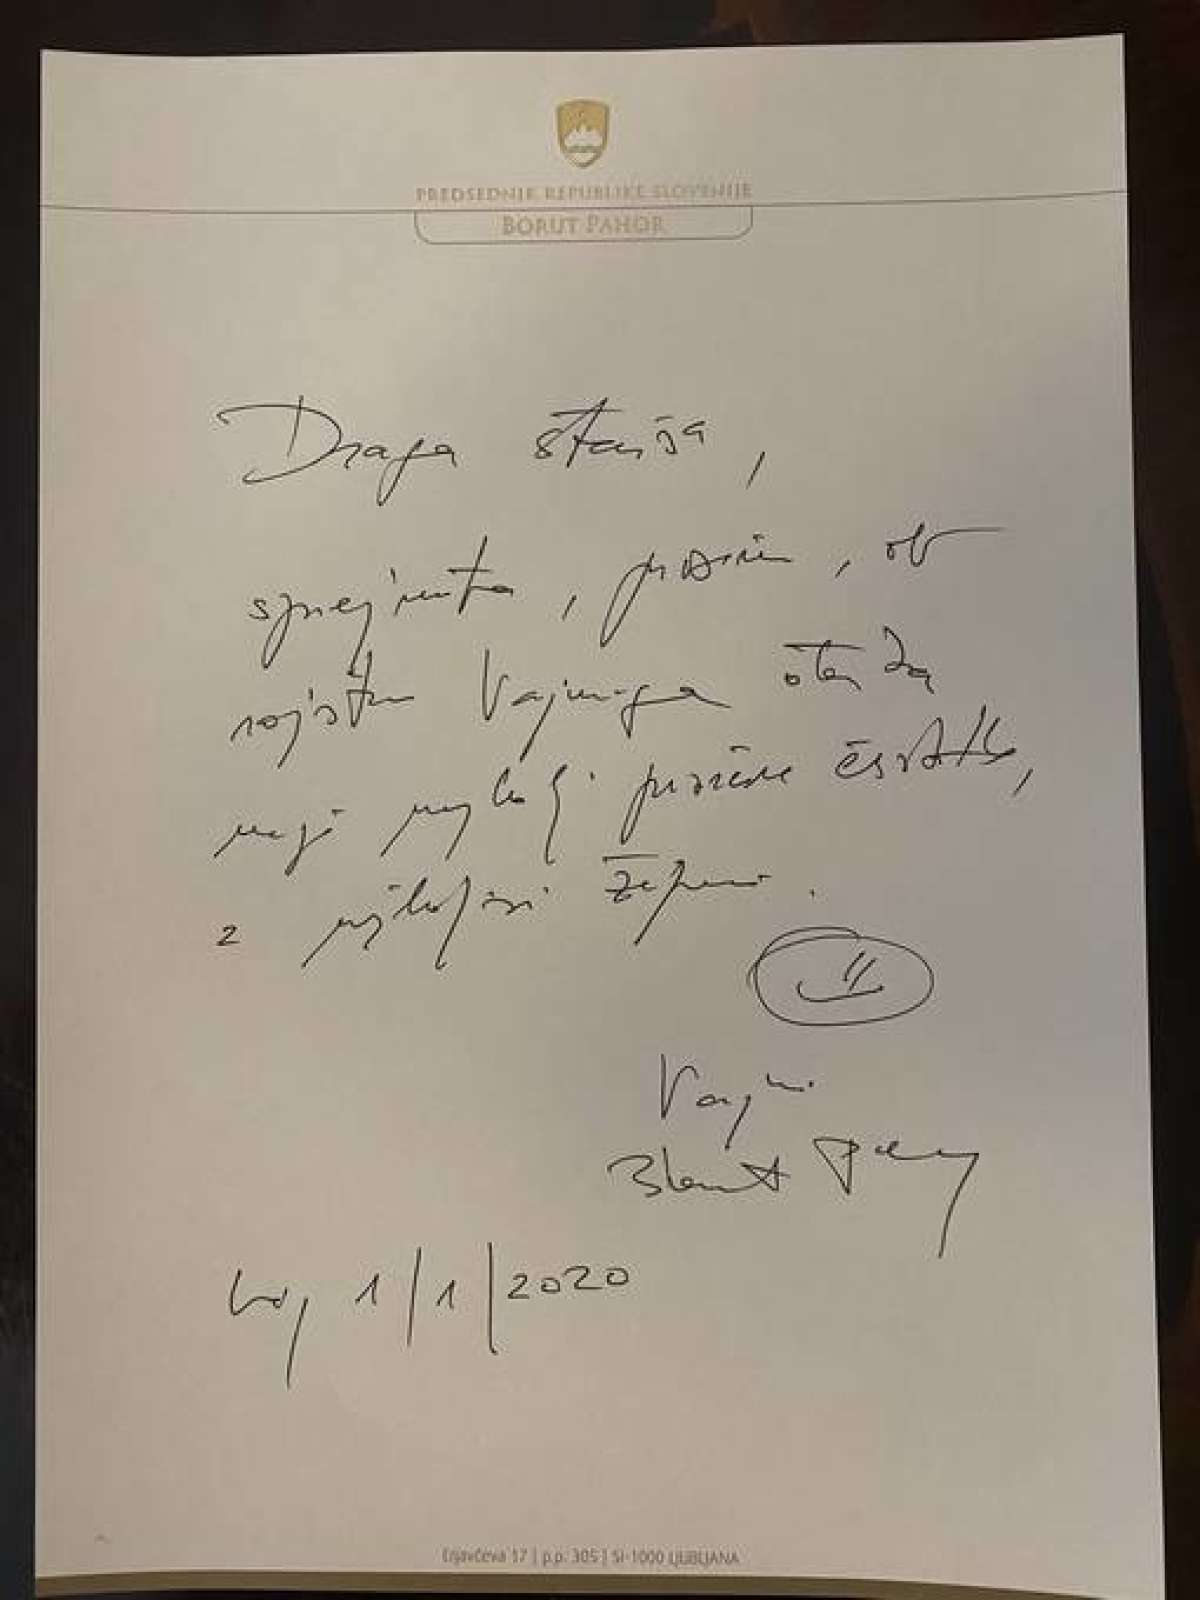 PREDSEDNIK REPUBLIKE SLOVENIJE
BORUT PAHOR
Draga starša,
sprejmita, prosim, ob
rojstvu Vajinega otroka
moje najbolj prisrčne čestitke,
z najboljšimi željami.
Vajin
Borut Pahor
Lj, 1/1/2020
Erjavčeva 17 | p.p. 305 | SI-1000 LJUBLJANA